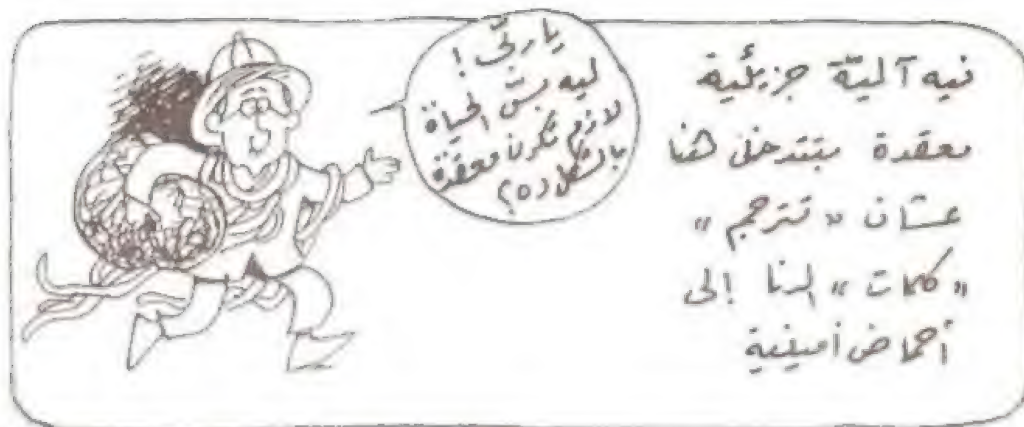 فيه آليّة جزيئية
معقدة بتتدخل هنا
عشان «تترجم»
«كلمات» الرنا إلى
أحماض أمينية
يا ربّي!
ليه بسّ الحياة
لازم تكون معقدة
بالشكل ده؟